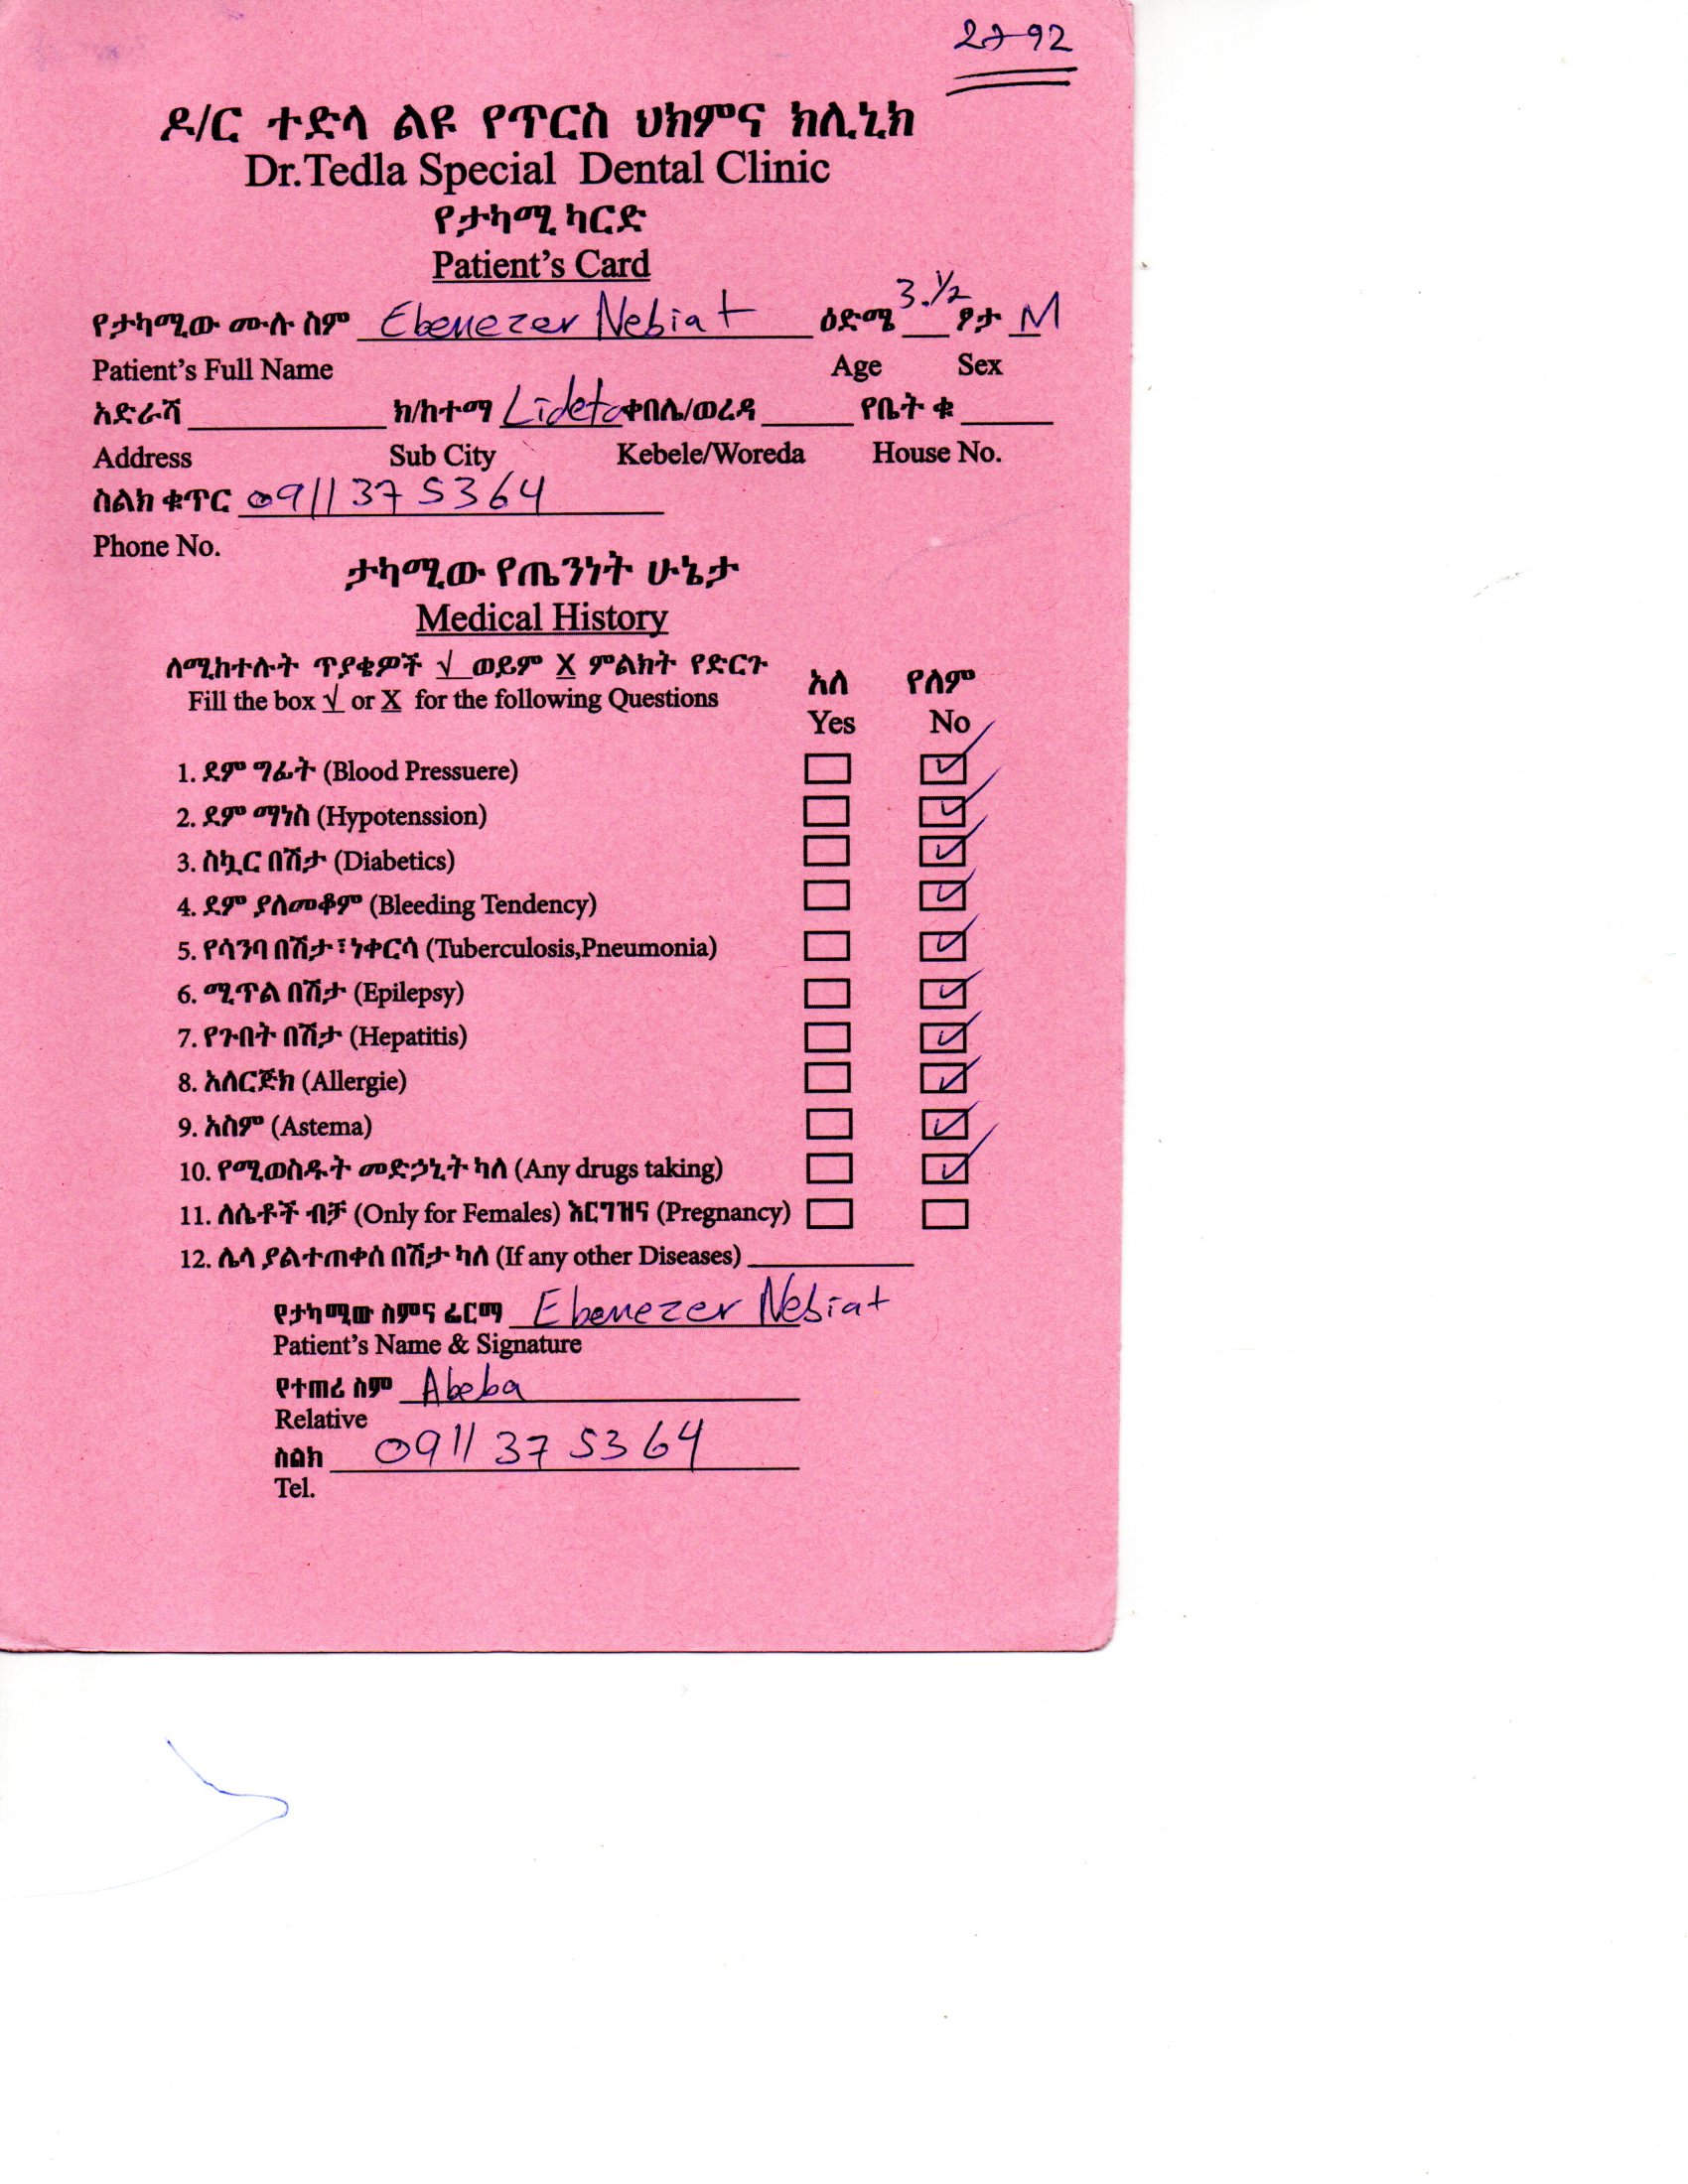 2792
ዶ/ር ተድላ ልዩ የጥርስ ህክምና ክሊኒክ
Dr.Tedla Special Dental Clinic
የታካሚ ካርድ
Patient's Card
የታካሚው ሙሉ ስም Ebenezer Nebiat ዕድሜ 3.1/2 ፆታ M
Patient's Full Name Age Sex
አድራሻ ክ/ከተማ Lideta ቀበሌ/ወረዳ የቤት ቁ
Address Sub City Kebele/Woreda House No.
ስልክ ቁጥር 0911 37 5364
Phone No.
ታካሚው የጤንነት ሁኔታ
Medical History
ለሚከተሉት ጥያቄዎች √ ወይም X ምልክት የድርጉ አለ የለም
Fill the box √ or X for the following Questions Yes No
1. ደም ግፊት (Blood Pressuere) ☐ ☑
2. ደም ማነስ (Hypotenssion) ☐ ☑
3. ስኳር በሽታ (Diabetics) ☐ ☑
4. ደም ያለመቆም (Bleeding Tendency) ☐ ☑
5. የሳንባ በሽታ፣ነቀርሳ (Tuberculosis,Pneumonia) ☐ ☑
6. ሚጥል በሽታ (Epilepsy) ☐ ☑
7. የጉበት በሽታ (Hepatitis) ☐ ☑
8. አለርጅክ (Allergie) ☐ ☑
9. አስም (Astema) ☐ ☑
10. የሚወስዱት መድኃኒት ካለ (Any drugs taking) ☐ ☑
11. ለሴቶች ብቻ (Only for Females) እርግዝና (Pregnancy) ☐ ☐
12. ሌላ ያልተጠቀሰ በሽታ ካለ (If any other Diseases)
የታካሚው ስምና ፊርማ Ebenezer Nebiat
Patient's Name & Signature
የተጠሪ ስም Abeba
Relative
ስልክ 0911 37 53 64
Tel.